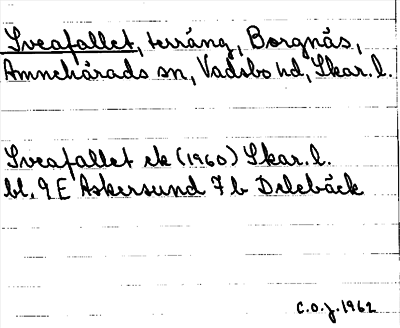 Sveafallet, terräng, Borgnäs,
Amnehärads sn, Vadsbo hd, Skar. l.
Sveafallet ek (1960) Skar. l.
bl. 9 E Askersund 7 b Delebäck
C.O.J. 1962